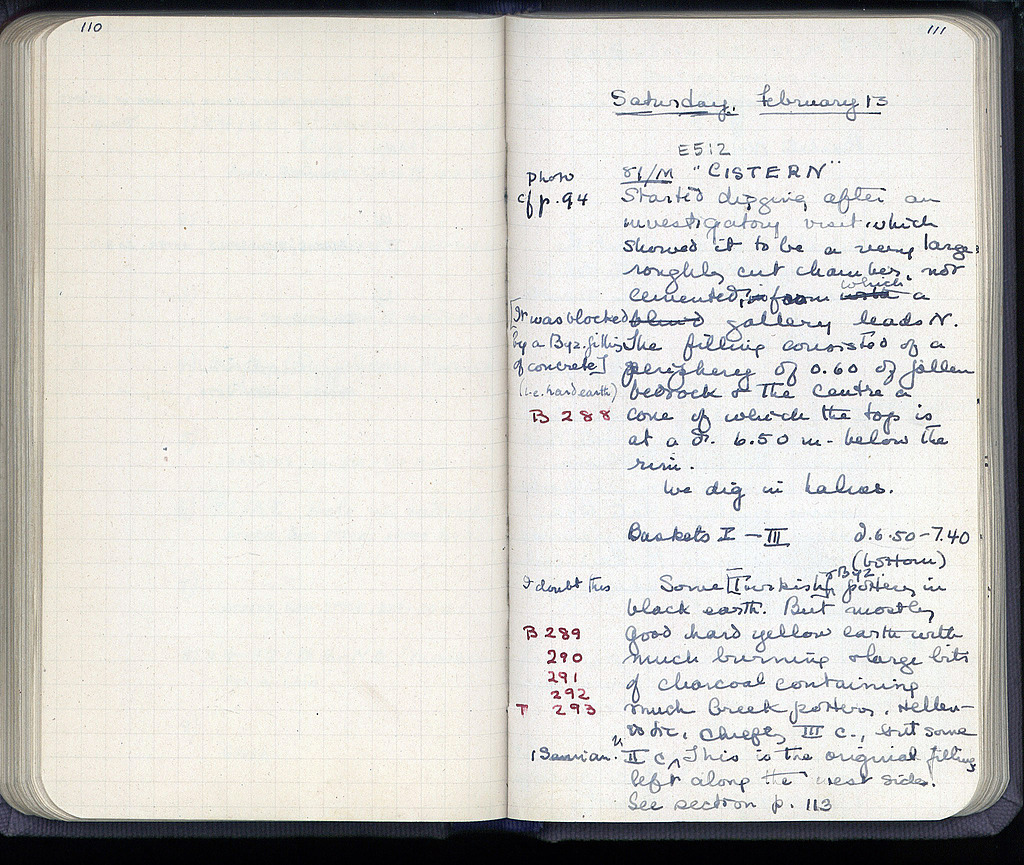 110
111
Saturday, February 13
E512
Photo
cf p. 94
81/M "CISTERN"
Started digging after an
investigatory visit which
showed it to be a very large
roughly cut chamber, not
cemented, from which a
[It was blocked
by a Byz. filling
of concrete]
(i.e. hard earth)
blind gallery leads N.
The filling consisted of a
periphery of 0.60 of fallen
bedrock & the centre a
B 288
cone of which the top is
at a d. 6.50 m. below the
rim.
We dig in halves.
Baskets I – III d. 6.50–7.40
(bottom)
I doubt this
Some [Turkish] & Byz. pottery in
black earth. But mostly
B 289
290
291
292
T 293
good hard yellow earth with
much burning & large bits
of charcoal containing
much Greek pottery, Hellen-
istic, chiefly III c., but some
1 Samian.
II c. This is the original filling
left along the west side.
See section p. 113